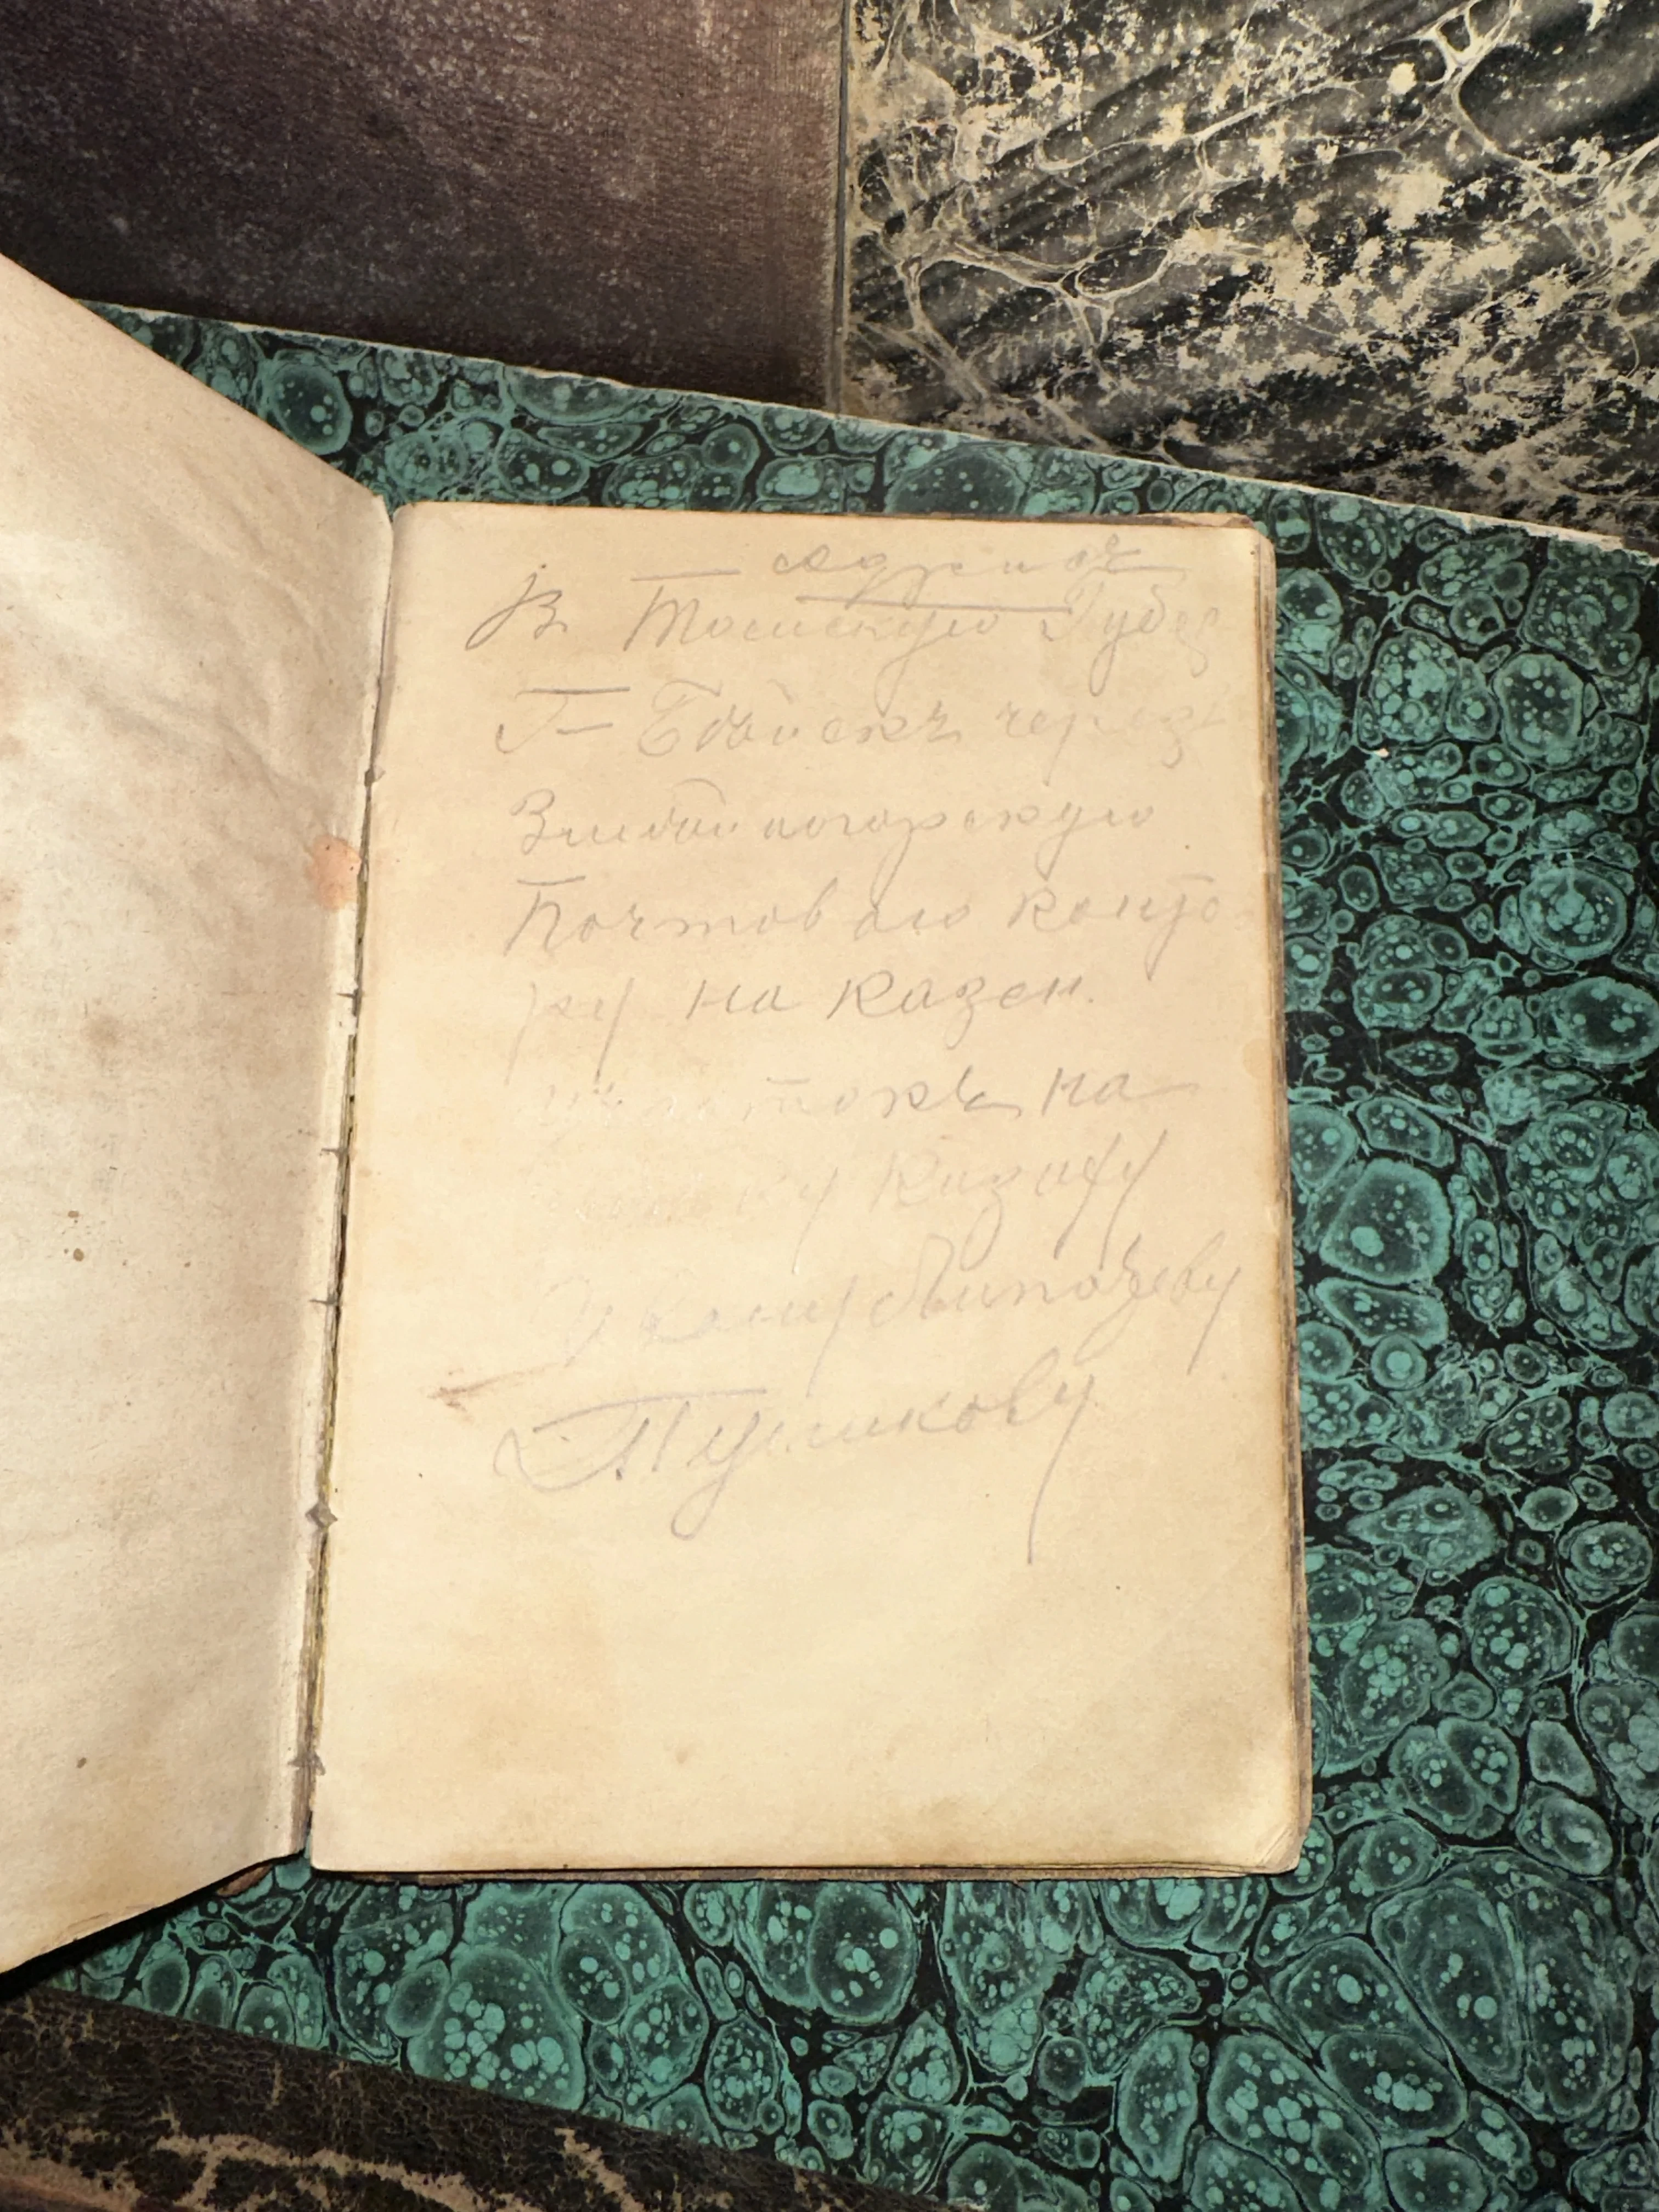 адрисъ
В Томскую Губер
Г- Бійскъ черезъ
Змѣиногорскую
Почтовою конто
ру на казен.
участокъ на
ку Казаку
Ивану
Пушкову